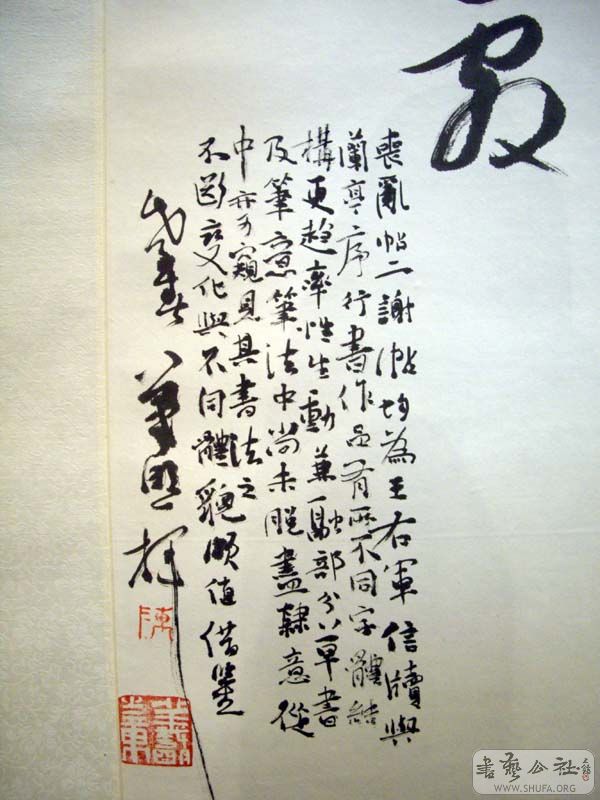 喪亂帖二謝帖均為王右軍信牘與
蘭亭序行書作品有所不同字體結
構更趨率性生動兼融部分草書
及筆意筆法中尚未脫盡隸意從
中亦可窺見其書法之
不斷變化與不同體貌頗值借鑒
書藝公社
WWW.SHUFA.ORG